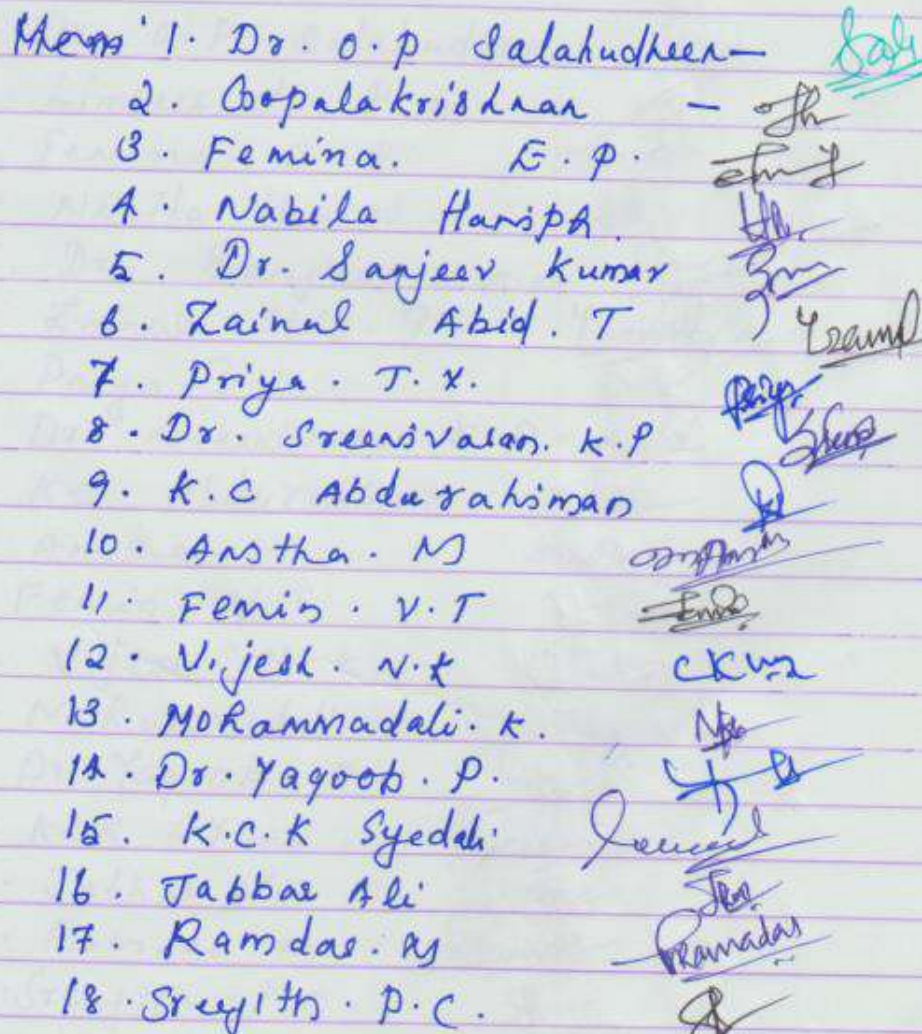 Mem' 1. Dr. O. P Salahudheen - Sali
2. Gopalakrishnan -
3. Femina. E. P.
4. Nabila Hanipha.
5. Dr. Sanjeev Kumar
6. Zainul Abid. T
7. Priya. T. X. Priya
8. Dr. Sreenivasan. K. P
9. K. C Abdurahiman
10. Anitha. M
11. Femin. V. T
12. Vijesh. N. K
13. Mohammadali. K.
14. Dr. Yaqoob. P.
15. K. C. K Syedali
16. Jabbar Ali
17. Ramdas. M Ramadas
18. Sreejith. P. C.